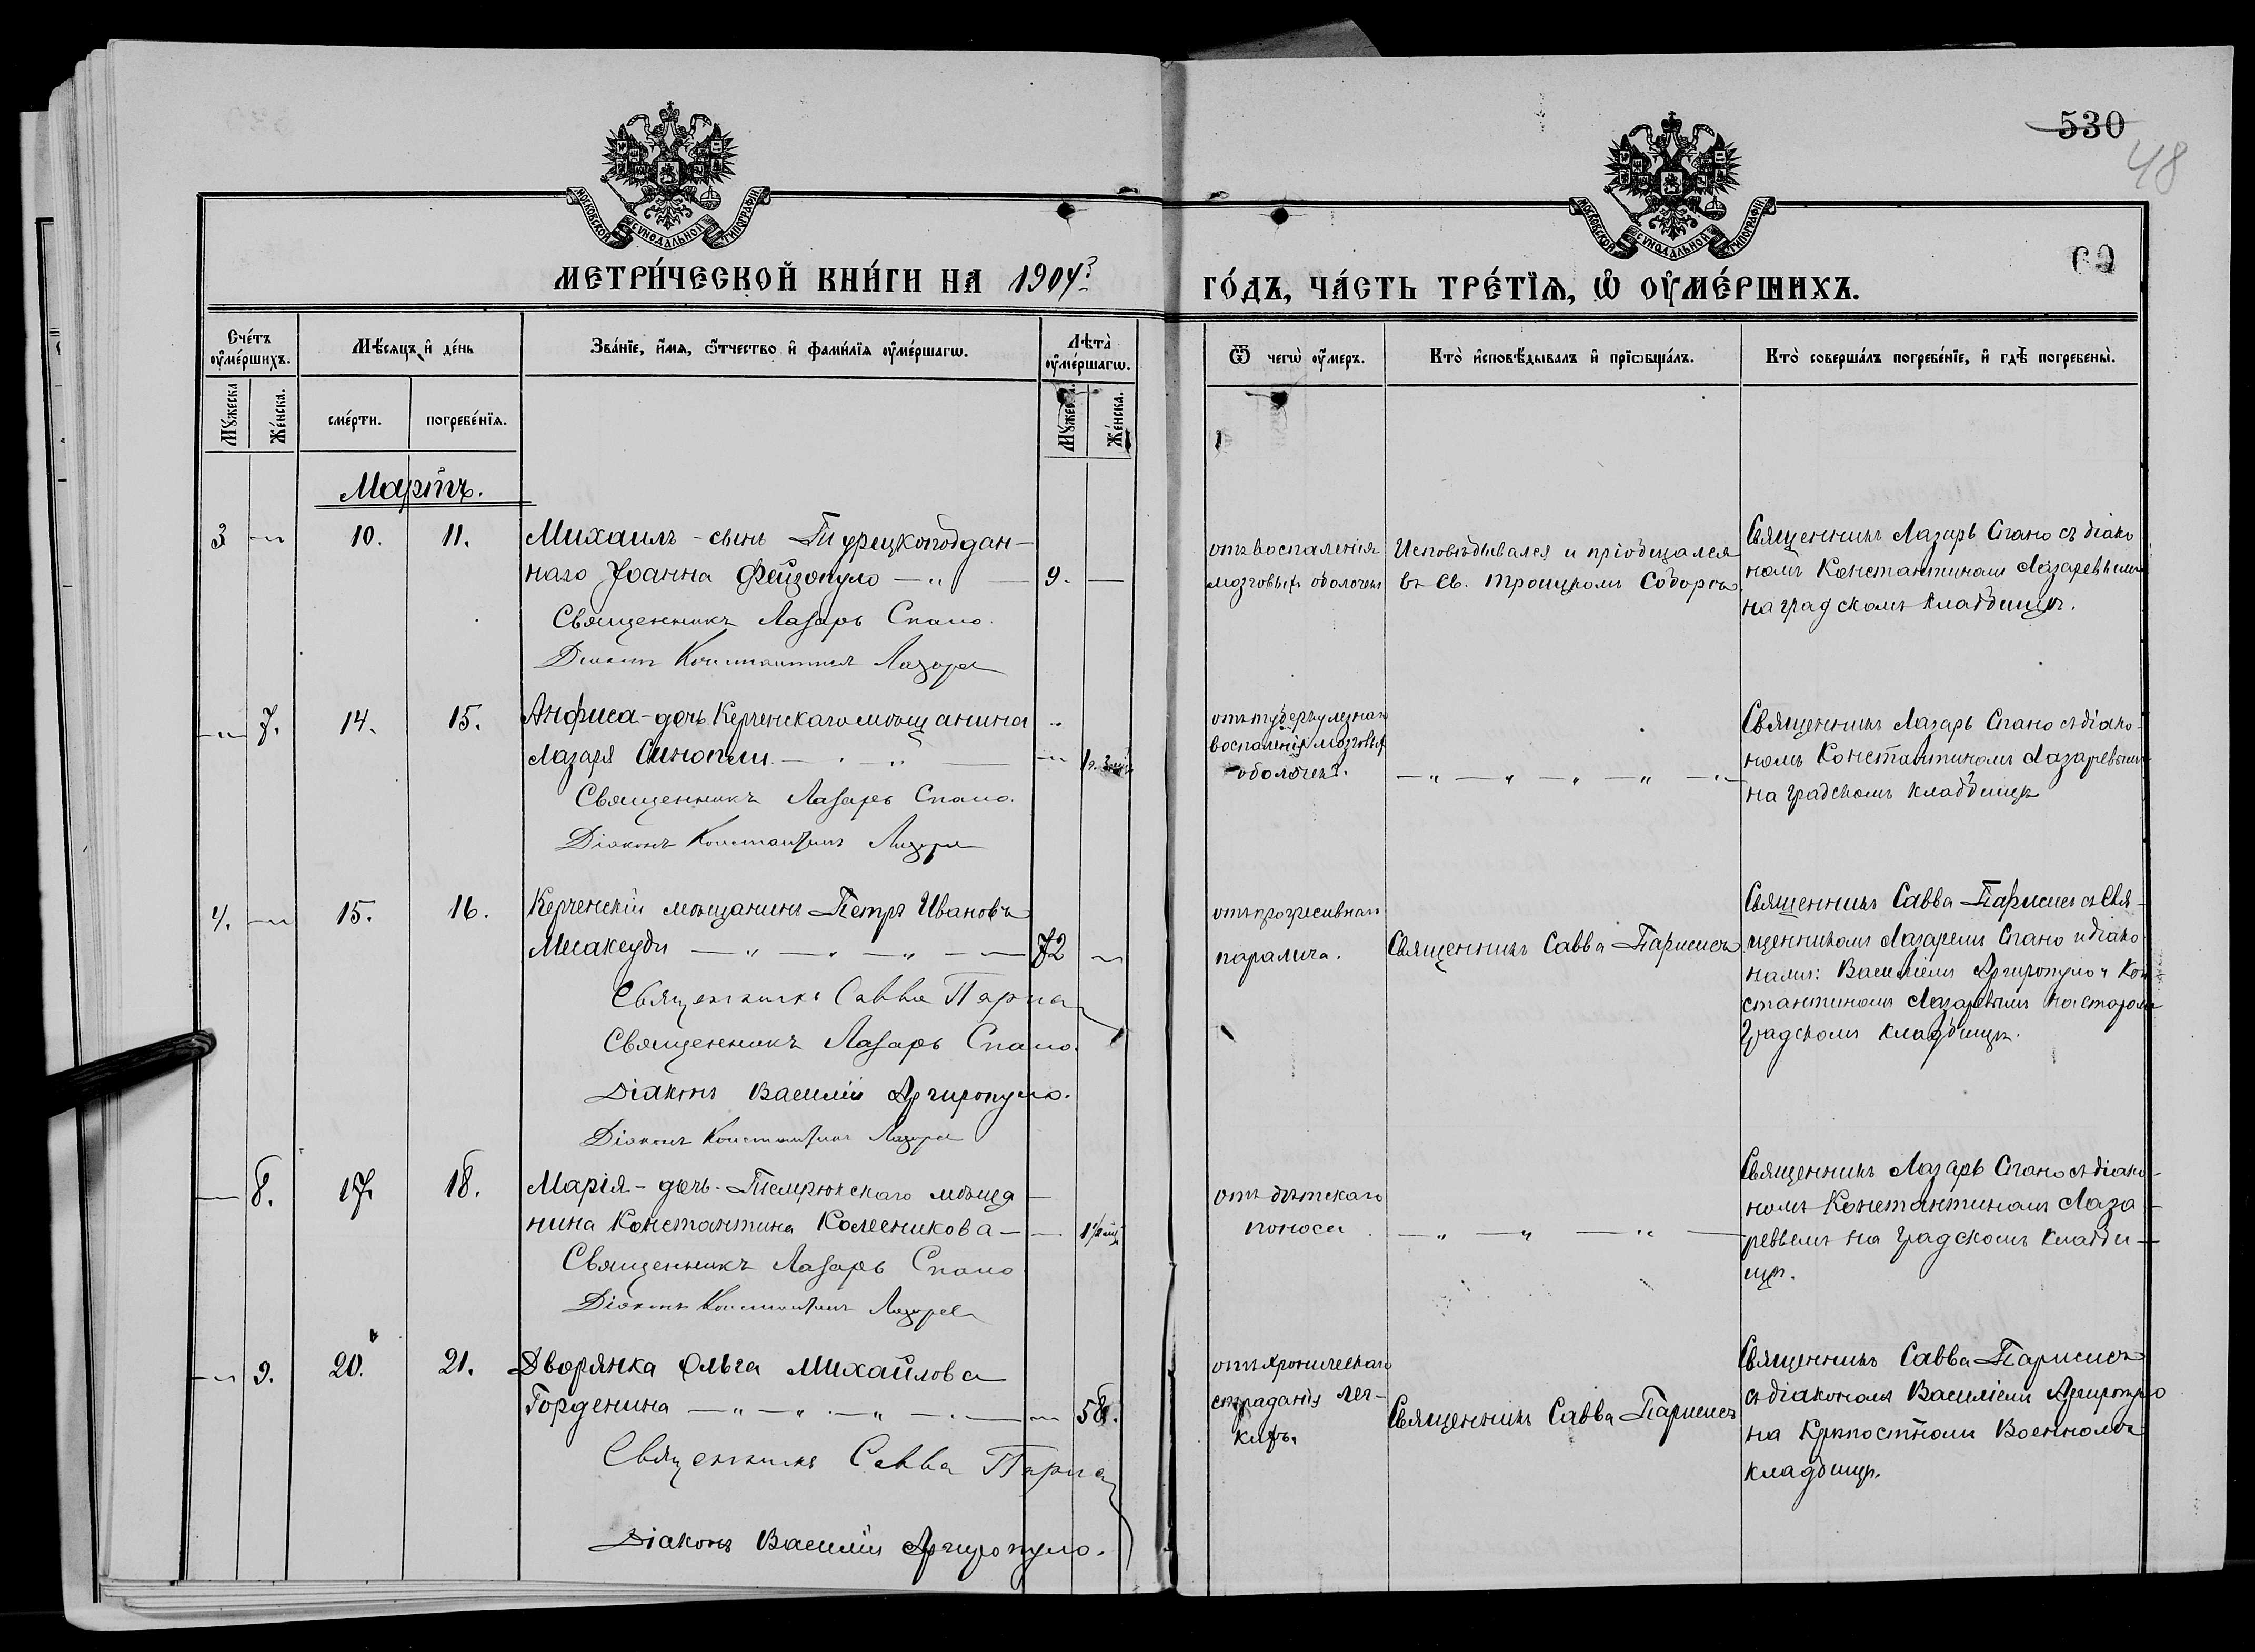 530
48
МОСКОВСКОЙ СУНОДАЛЬНОЙ ТИПОГРАФІИ
МОСКОВСКОЙ СУНОДАЛЬНОЙ ТИПОГРАФІИ
69
МЕТРИ́ЧЕСКОЙ КНИ́ГИ НА 1904 ГО́ДЪ, ЧА́СТЬ ТРЕ́ТІѦ, Ѡ҆ ОУ҆МЕ́РШИХЪ.
Сче́тъ оу҆ме́ршихъ.
Мꙋжеска
Же́нска.
Мѣ́сяцъ и҆ де́нь
сме́рти.
погребе́нїѧ.
Зва́нїе, и҆́мѧ, ѻ҆́тчество и҆ фами́лїѧ оу҆ме́ршагѡ.
Лѣта̀ оу҆ме́ршагѡ.
Мꙋжеска.
Же́нска.
Ѿ чегѡ̀ оу҆́меръ.
Кто̀ и҆сповѣ́дывалъ и҆ прїѡбща́лъ.
Кто̀ соверша́лъ погребе́нїе, и҆ гдѣ̀ погребены̀.
Мартъ.
3
10.
11.
Михаилъ - сынъ Турецкоподдан-
наго Іоанна Фейзопуло
9.
Священникъ Лазарь Спано.
Діаконъ Константинъ Лазарев
отъ воспаленія
мозговыхъ оболочекъ
Исповѣдывался и пріобщался
въ Св. Троицкомъ Соборѣ
Священникъ Лазарь Спано съ діако
номъ Константиномъ Лазаревымъ
на градскомъ кладбищѣ.
7.
14.
15.
Анфиса - дочь Керченскаго мѣщанина
Лазаря Синопли
Священникъ Лазарь Спано.
Діаконъ Константинъ Лазарев
отъ туберкулезнаго
воспаленія мозговыхъ
оболочекъ.
Священникъ Лазарь Спано съ діако-
номъ Константиномъ Лазаревымъ
на градскомъ кладбищѣ
4.
15.
16.
Керченскій мѣщанинъ Петръ Ивановъ
Месаксуди
72
Священникъ Савва Париса
Священникъ Лазарь Спано.
Діаконъ Василій Аргиропуло.
Діаконъ Константинъ Лазарев
отъ прогресивнаго
паралича.
Священникъ Савва Парисисъ
Священникъ Савва Парисисъ съ Свя-
щенникомъ Лазаремъ Спано и діако
нами: Василіемъ Аргиропуло и Кон
стантиномъ Лазаревымъ на старомъ
Градскомъ кладбищѣ.
8.
17.
18.
Марія - дочь Темрюкскаго мѣща
нина Константина Колесникова
Священникъ Лазарь Спано
Діаконъ Константинъ Лазарев
отъ дѣтскаго
поноса
Священникъ Лазарь Спано съ діако-
номъ Константиномъ Лаза
ревымъ на Градскомъ кладби-
щѣ.
9.
20.
21.
Дворянка Ольга Михайлова
Горденина
58.
Священникъ Савва Париса
Діаконъ Василій Аргиропуло.
отъ хроническаго
страданія лег-
кихъ.
Священникъ Савва Парисисъ
Священникъ Савва Парисисъ
съ діакономъ Василіемъ Аргиропуло
на Крѣпостномъ Военномъ
кладбищѣ.